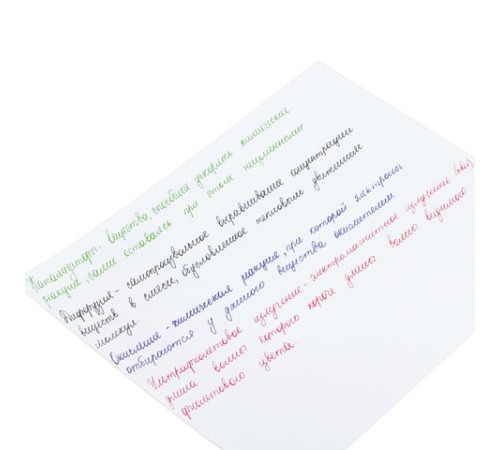 Катализаторы - вещества, способные ускорять химические
реакции, сами оставаясь при этом неизменными
Диффузия - самопроизвольное выравнивание концентрации
веществ в смеси, обусловленное тепловым движением
молекул
Окисление - химическая реакция, при которой электроны
отбираются у данного вещества окислителем
Ультрафиолетовое излучение - электромагнитное излучение
длина волны которого короче длины волны видимого
фиолетового цвета.